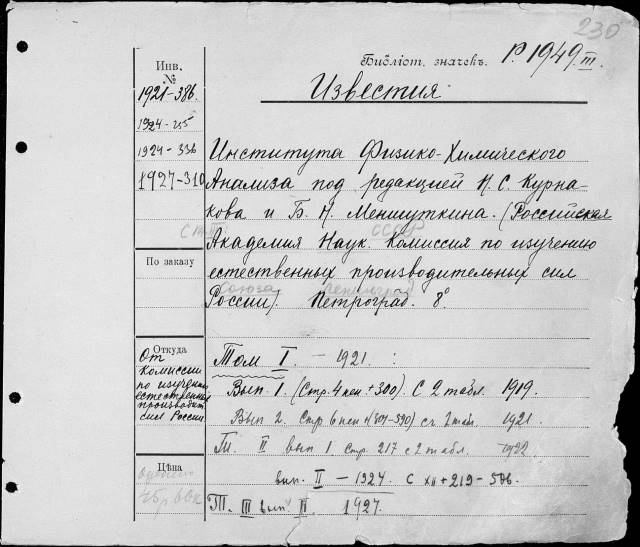 230
Библіот. значекъ. P. 1949 III.
Инв.
№
1921-386.
1924-255
1924-336
1927-310
Известия
Института Физико-Химического
Анализа под редакцией Н. С. Курна-
кова и Б. Н. Меншуткина. (Российская
СССР
Академия Наук. Комиссия по изучению
естественных производительных сил
Союза Ленинград
России). Петроград. 8°
По заказу
Откуда
От
Комиссии
по изучению
естественных
производит.
сил России
Цѣна
Том I. - 1921. :
Вып. 1. (Стр. 4 нен. + 300) с 2 табл. 1919.
Вып 2. Стр 6 нен + (301-390) съ 2 таб. 1921.
Т. II вып 1. стр. 217 с 2 табл. 1922
вып. II - 1924. с XII + 219-506.
Т. III вып. II 1927.